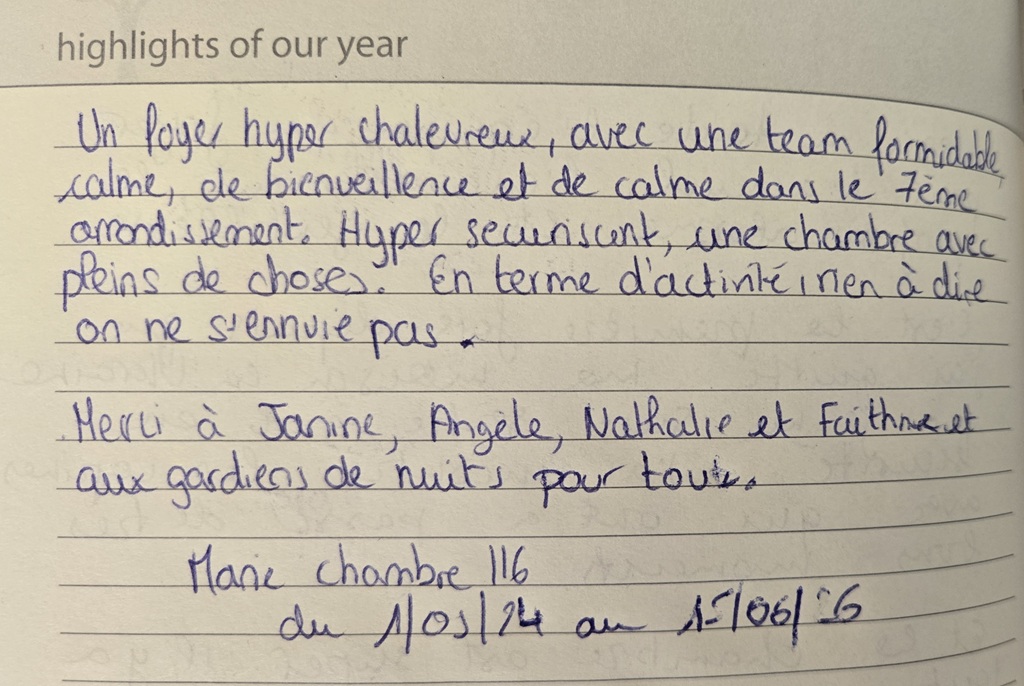 highlights of our year
Un foyer hyper chaleureux, avec une team formidable,
calme, de bienveillence et de calme dans le 7ème
arrondissement. Hyper securisent, une chambre avec
pleins de choses. En terme d'activité, rien à dire
on ne s'ennuie pas.
Merci à Janine, Angèle, Nathalie et et
aux gardiens de nuits pour tout.
Marie chambre 116
du au